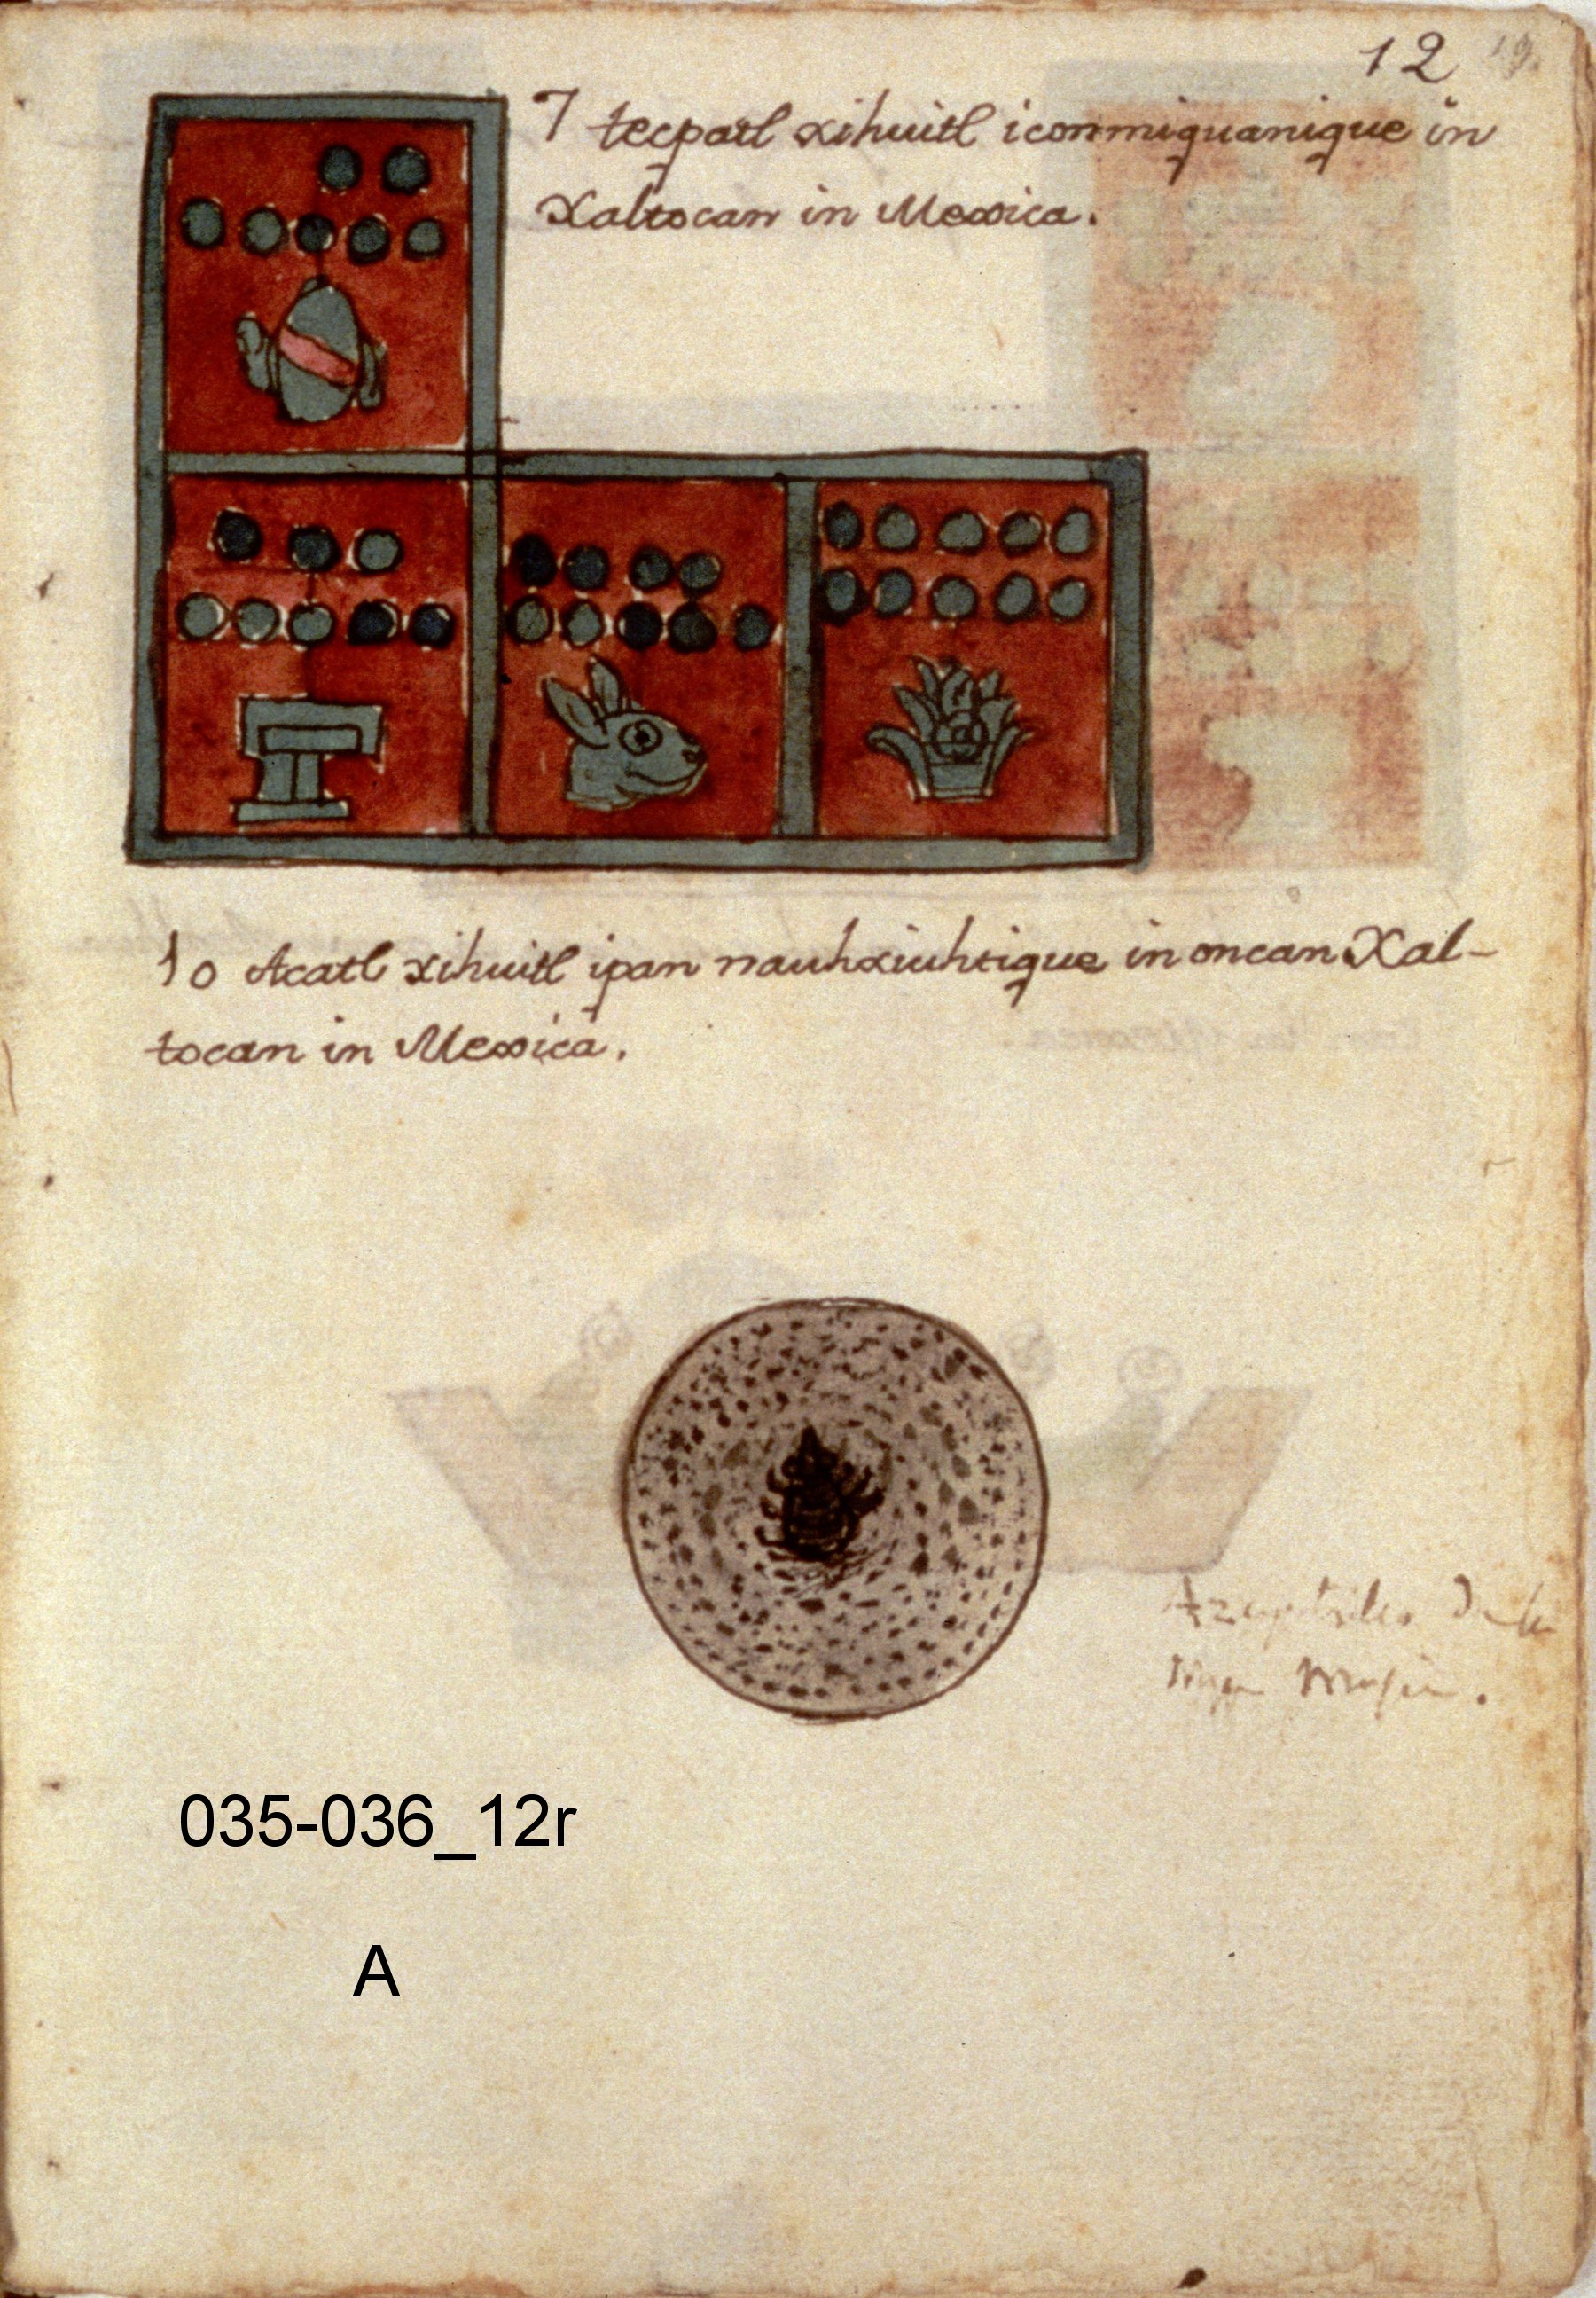 12
7 tecpatl xihuitl iconmiquanique in
Xaltocan in Mexica.
10 Acatl xihuitl ipan nauhxiuhtique in oncan Xal-
tocan in Mexica.
035-036_12r
A